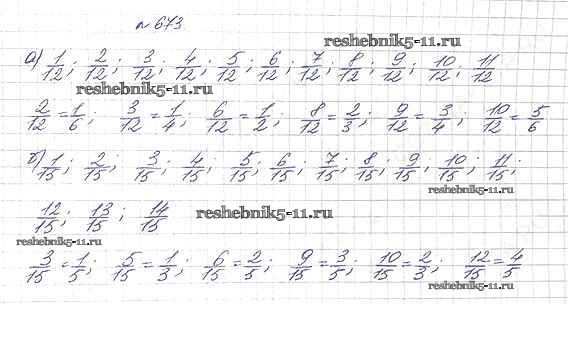 № 673
reshebnik5-11.ru
а) 1/12; 2/12; 3/12; 4/12; 5/12; 6/12; 7/12; 8/12; 9/12; 10/12; 11/12
reshebnik5-11.ru
2/12 = 1/6; 3/12 = 1/4; 6/12 = 1/2; 8/12 = 2/3; 9/12 = 3/4; 10/12 = 5/6
б) 1/15; 2/15; 3/15; 4/15; 5/15; 6/15; 7/15; 8/15; 9/15; 10/15; 11/15;
reshebnik5-11.ru
12/15; 13/15; 14/15
reshebnik5-11.ru
reshebnik5-11.ru
3/15 = 1/5; 5/15 = 1/3; 6/15 = 2/5; 9/15 = 3/5; 10/15 = 2/3; 12/15 = 4/5
reshebnik5-11.ru